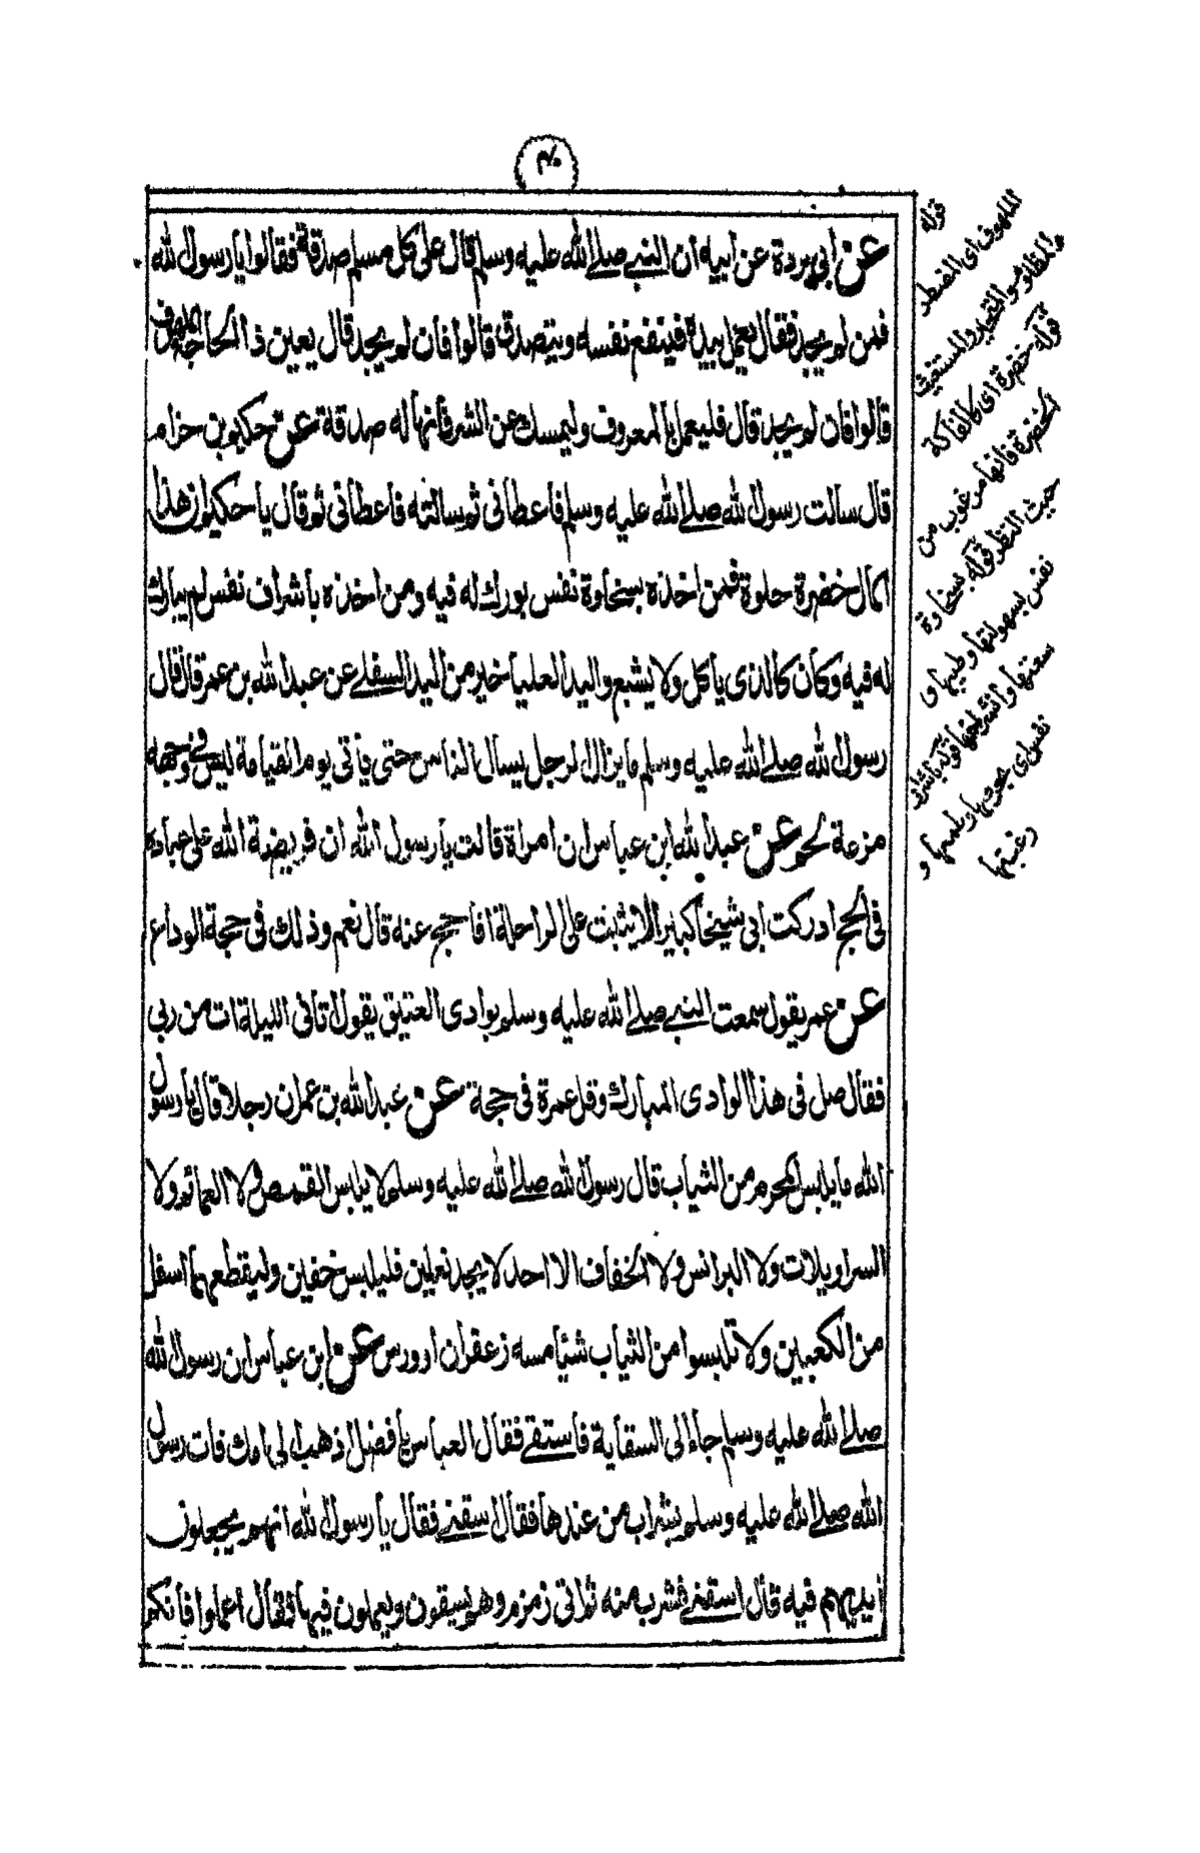 ٣٠
عن ابي بردة عن ابيه ان النبي صلے الله عليه وسلم قال على كل مسلم صدقة فقالوا يا رسول الله
فمن لم يجد فقال يعمل بيدة فينفع نفسه ويتصدق قالوا فان لم يجد قال يعين ذا الحاجة الملهوف
قالوا فان لم يجد قال فليعمل بالمعروف وليمسك عن الشر فانها له صدقة عن حكيم بن حزام
قال سالت رسول الله صلے الله عليه وسلم فاعطانى ثم سالته فاعطانى ثم قال يا حكيم ان هذا
المال خضرة حلوة فمن اخذه بسخاوة نفس بورك له فيه ومن اخذه باشراف نفس لم يبارك
له فيه وكان كالذى ياكل ولا يشبع واليد العليا خير من اليد السفلے عن عبد الله بن عمر قال قال
رسول الله صلے الله عليه وسلم ما يزال الرجل يسال الناس حتى ياتى يوم القيامة ليس فى وجهه
مزعة لحم عن عبد الله ابن عباس ان امراة قالت يا رسول الله ان فريضة الله على عباده
فى الحج ادركت ابى شيخا كبيرا لا يثبت على الراحلة افاحج عنه قال نعم وذلك فى حجة الوداع
عن عمر يقول سمعت النبي صلے الله عليه وسلم بوادى العتيق يقول اتانى الليلة ات من ربى
فقال صل فى هذا الوادى المبارك وقل عمرة فى حجة عن عبد الله بن عمر ان رجلا قال يا رسول
الله ما يلبس المحرم من الثياب قال رسول الله صلے الله عليه وسلم لا يلبس القمص ولا العمائم ولا
السراويلات ولا البرانس ولا الخفاف الا احد لا يجد نعلين فليلبس خفين وليقطعهما اسفل
من الكعبين ولا تلبسوا من الثياب شئيا مسه زعفران او ورس عن ابن عباس ان رسول الله
صلے الله عليه وسلم جاء الى السقاية فاستقے فقال العباس يا فضل اذهب الى امك فات رسول
الله صلے الله عليه وسلم بشراب من عندها فقال اسقنے فقال يا رسول الله انهم يجعلون
ايديهم فيه قال اسقنے فشرب منه ثم اتى زمزم وهم يسقون ويعملون فيها فقال اعملوا فانكم
قوله
الملهوف اى المضطر
والمظلوم والمستغيث
قوله خضرة اى كالفاكهة
الخضرة فانها مرغوب من
حيث النظر قوله بسخاوة
نفس بسهولتها وطيبها و
سعتها قوله باشراف
نفس اى بحرصها وطمعها و
رغبتها